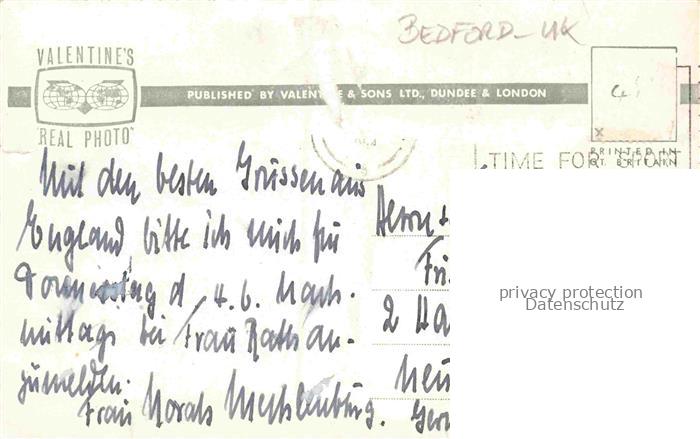 BEDFORD-UK
VALENTINE'S
"REAL PHOTO"
PUBLISHED BY VALENTINE & SONS LTD., DUNDEE & LONDON
TIME FOR
PRINTED IN
GT. BRITAIN
Mit den besten Grüssen aus
England bitte ich mich für
Donnerstag d. 4.6. Nach-
mittags bei Frau Rath an-
zumelden.
Frau
Herrn
2 Ha
Ger
privacy protection
Datenschutz